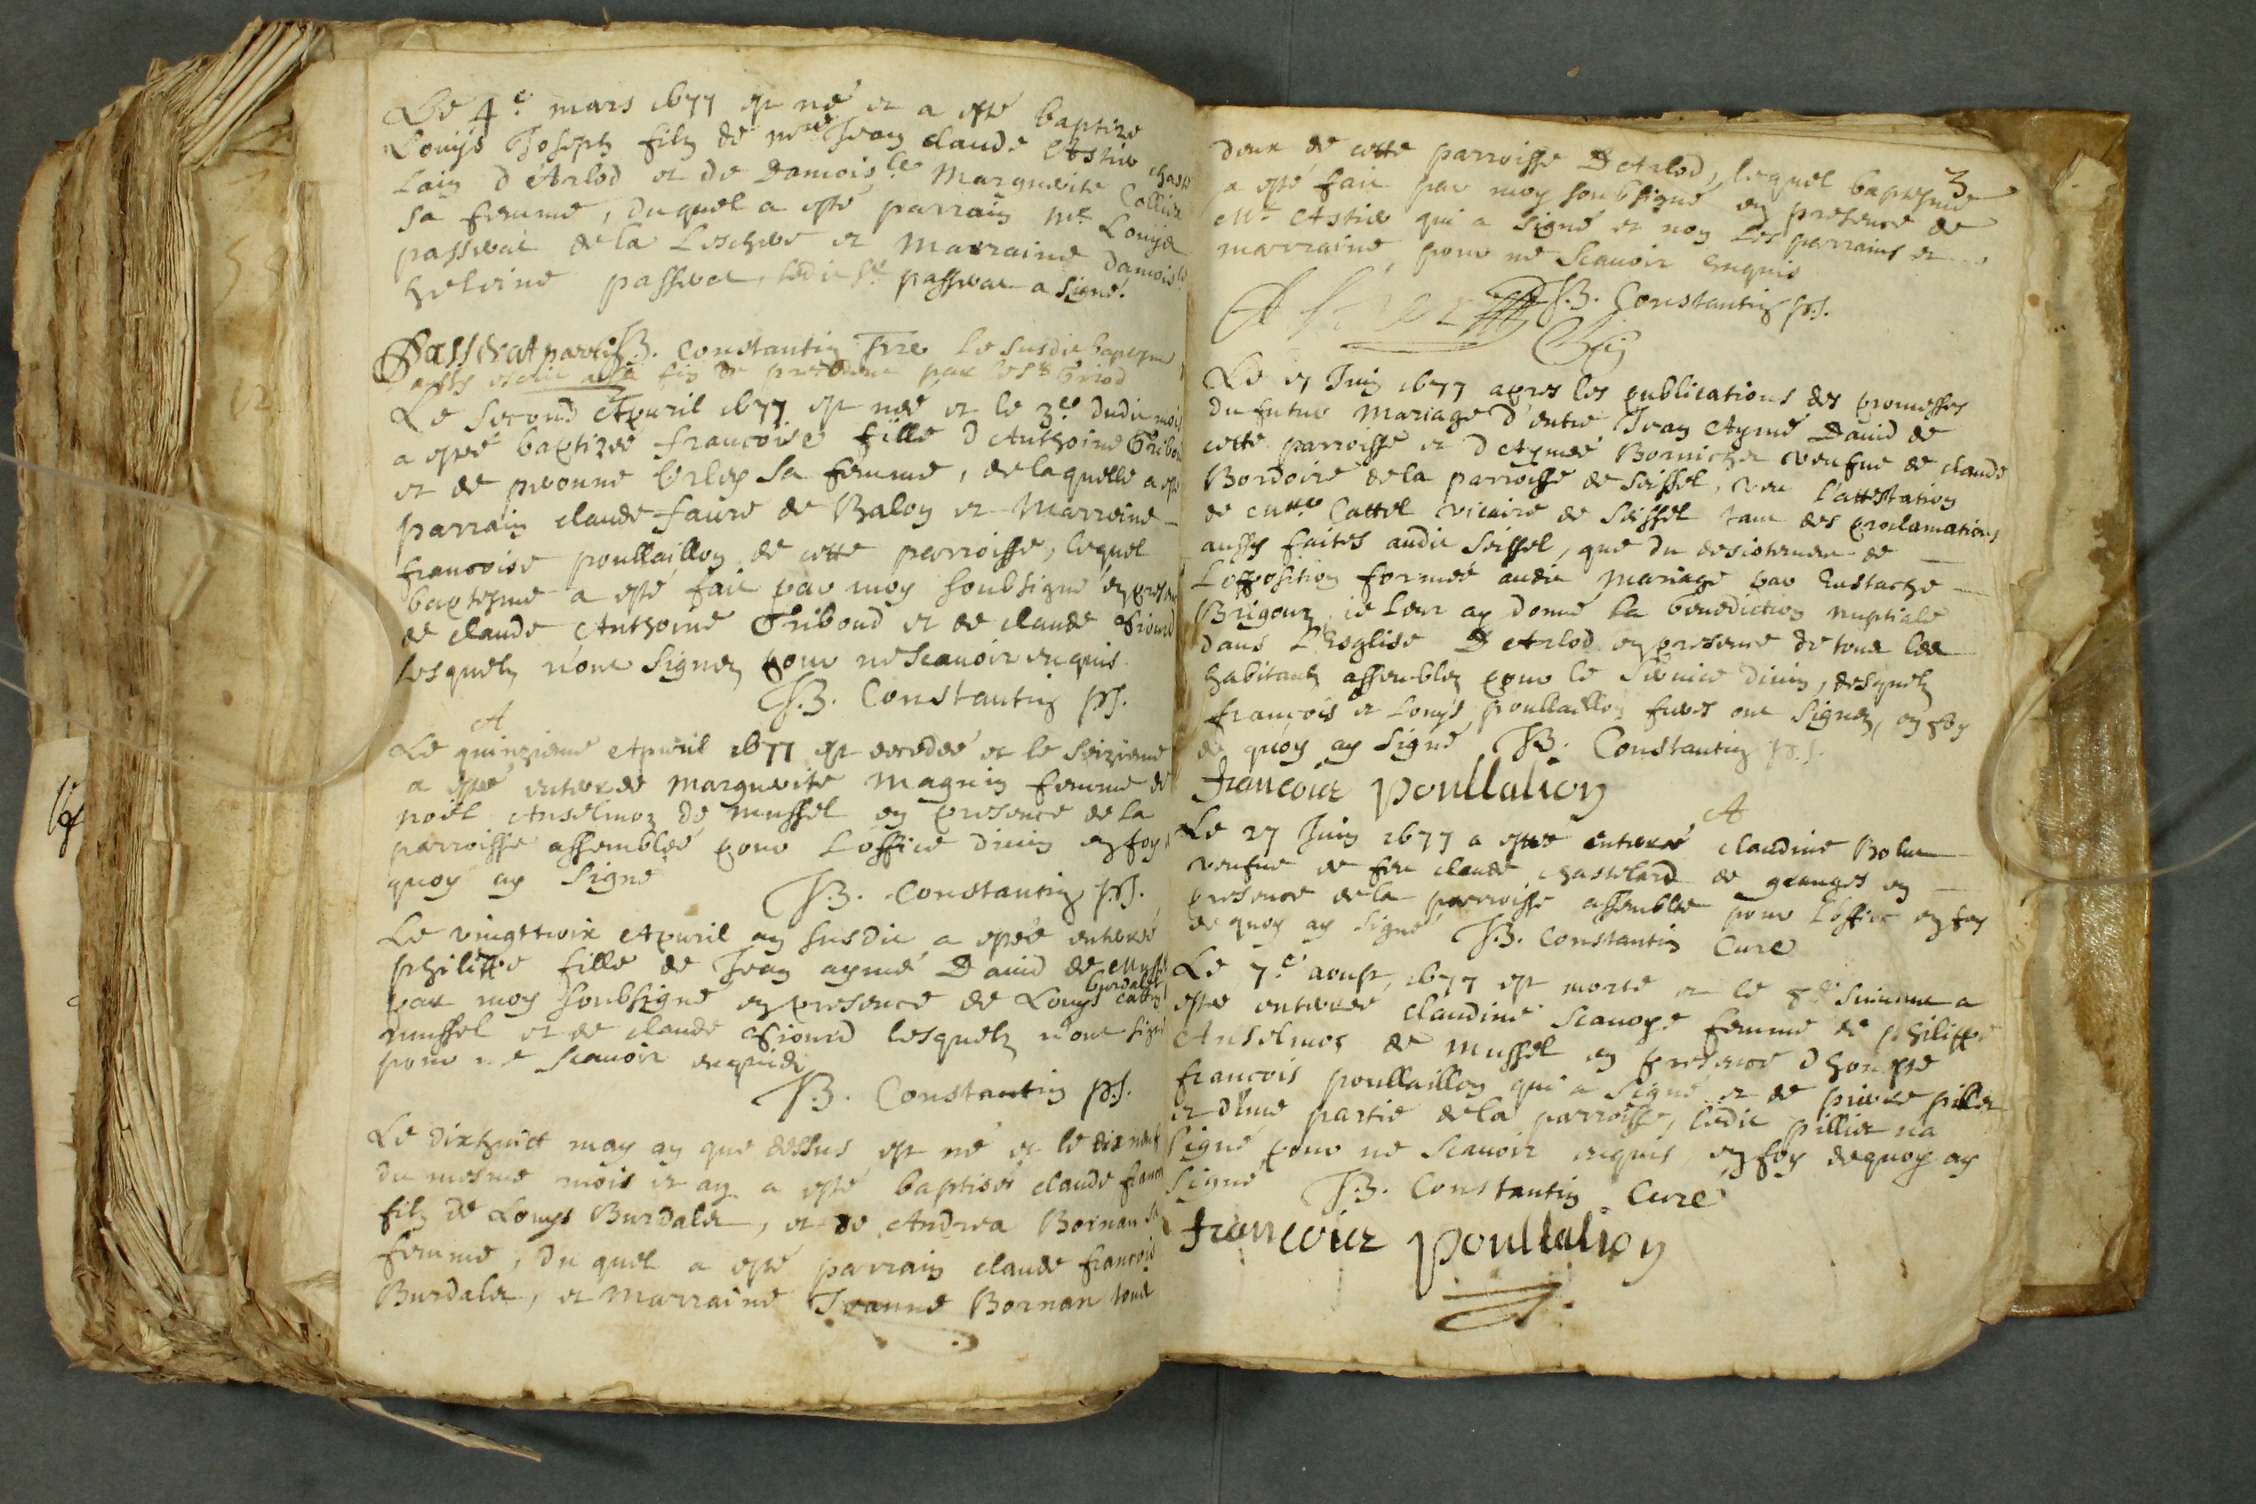 Le 4e mars 1677 est né et a esté baptizé
Louys Joseph filz de mre Jean claude Astier chaste
lain d'Arlod et de Damoislle Marguerite Collier
sa femme, duquel a esté parrain mr Louys
passerat de la Leschere et Marraine damoislle
helvine passerat, ledit Sr passerat a signé.
Passerat parrein JB. Constantin
Le second Apuril 1677 est née et le 3e dudit mois
a esté baptizée francoise fille d'Anthoine Tribou
et de pvonne Orlez sa femme, de laquelle a esté
parrain claude faure de Balon et Marreine
francoise poullaillon de cette parroisse, lequel
baptesme a esté fait par moy soubsigné en presen
de claude Anthoine Triboud et de claude Friond
lesquelz n'ont signez pour ne scauoir enquis
JB. Constantin ps.
A
Le quinzieme Apuril 1677 est decedée et le seizieme
a esté enterée Marguerite Magnin femme de
noël Anselmoz de mussel en presence de la
parroisse assemblée pour L'office diuin en foy de
quoy ay signé
JB. Constantin ps.
Le vingttroix Apuril an susdit a esté enterée
philippe fille de Jean aymé Dauid de Mussel
burdalet
par moy soubsigné en presence de Louys
mussel et de claude Friond lesquelz n'ont signé
pour ne scauoir enquis
JB. Constantin ps.
Le dixhuict may an que dessus est né et le dix neuf
du mesme mois et an a esté baptisé claude francois
filz de Louys Burdalet, et de Andrea Bornan sa
femme, duquel a esté parrain claude francois
Burdalet, et Marraine Jeanne Bornan tous
3
deux de cette parroisse D'Arlod, lequel baptesme
a esté fait par moy soubsigné en presence de
Mre Astier qui a signé et non les parrains et
marraine, pour ne scauoir enquis
Astier JB. Constantin ps.
Le Juin 1677 apres les publications des promesses
du futur Mariage d'entre Jean Aymé Dauid de
cette parroisse et d'Aymée Bornicher veufue de claude
Bordoire de la parroisse de Seissel, veu l'attestation
de Cattel vicaire de Seissel tant des proclamations
aussy faites audit Seissel, que du desistement de
L'opposition formée audit Mariage par Eustache
Brigour, ie leur ay donné la benediction nuptiale
dans L'Esglise D'Arlod en presence de tous les
habitants assemblez pour le seruice diuin, desquelz
francois et Louys poullaillon freres ont signez, en foy
de quoy ay signé JB. Constantin ps.
francois poullalion
A
Le 27 Juin 1677 a esté enterée claudine Bolu
veufue de feu claude chastelard de granges en
presence de la parroisse assemblée pour L'office en foy
de quoy ay signé JB. Constantin Curé
Le 7e aoust, 1677 est morte et le 8e suiuant a
esté enterée claudine Scauoye femme de philippe
Anselmoz de Mussel en presence d'honeste
francois poullaillon qui a signé et de pierre pillier
et d'une partie de la parroisse, ledit pillier na
signé pour ne scauoir enquis, en foy dequoy ay
signé JB. Constantin Curé
francois poullalion